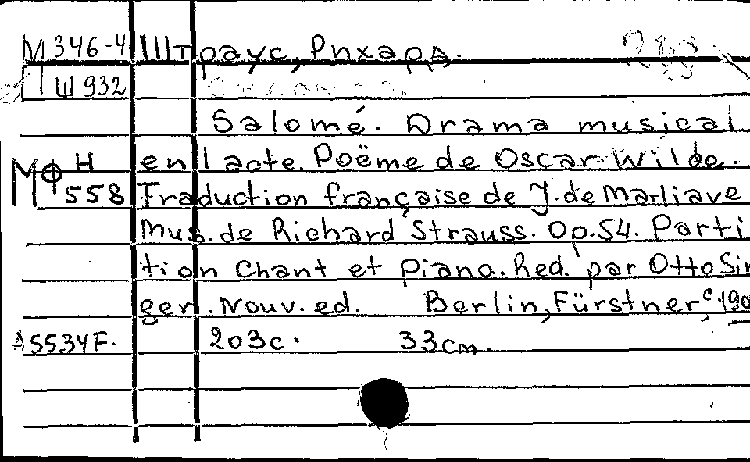 М 346-4 Штраус, Рихард.
Ш 932
Salomé. Drama musical
МФ Н en 1 acte. Poëme de Oscar Wilde.
558 Traduction française de J. de Marliave
Mus. de Richard Strauss. Op. 54. Parti
tion Chant et Piano. Red. par Otto Sin
ger. Nouv. ed. Berlin, Fürstner, c. 190
5534F. 203c. 33cm.